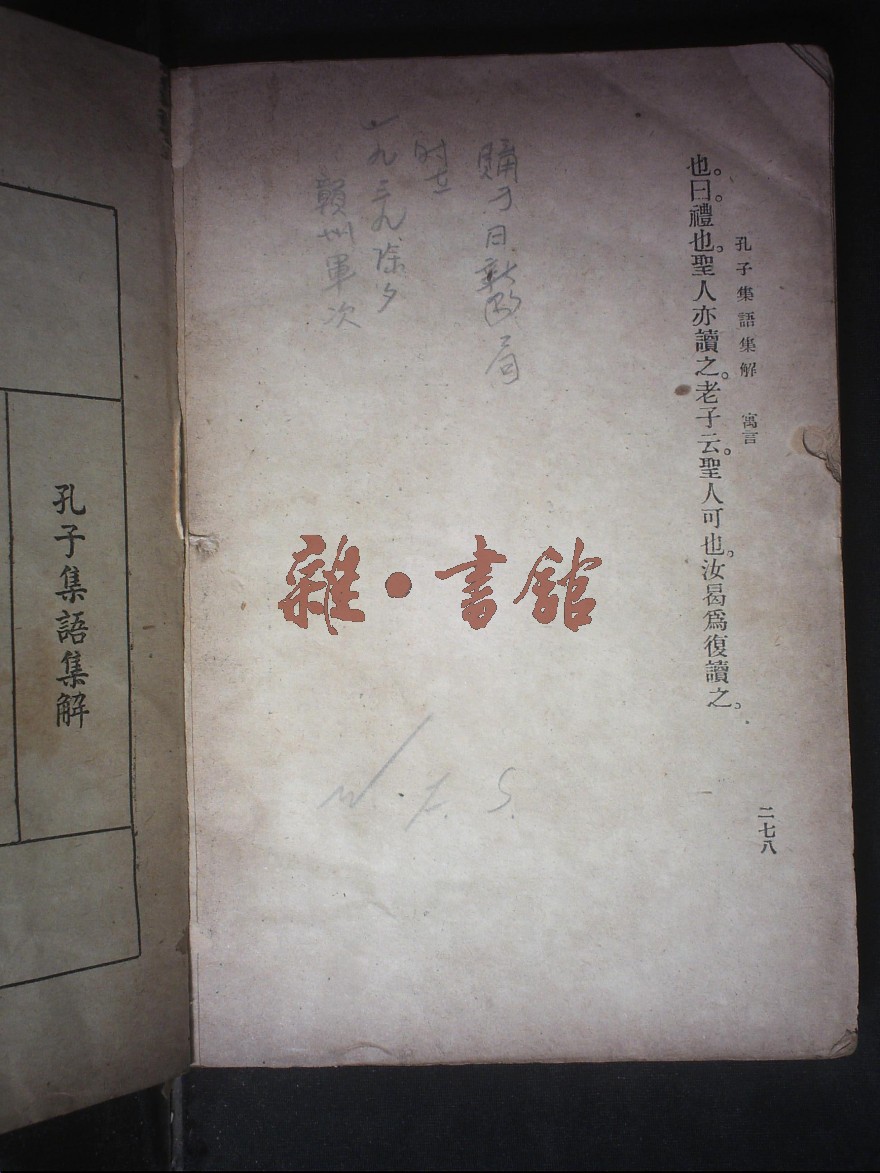 孔子集語集解　寓言
也。曰。禮也。聖人亦讀之。老子云。聖人可也。汝曷爲復讀之。
二七八
購于日新書局
時在
一九三九除夕
贛州軍次
雜·書館
W. F. S.
孔子集語集解